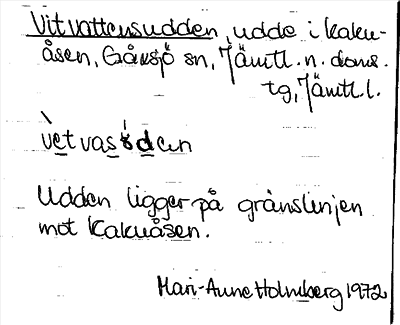 Vitvattensudden, udde i Kaku-
åsen, Gåxsjö sn, Jämtl. n. doms.
tg, Jämtl. l.
Udden ligger på gränslinjen
mot Kakuåsen.
Mari-Anne Holmberg 1972